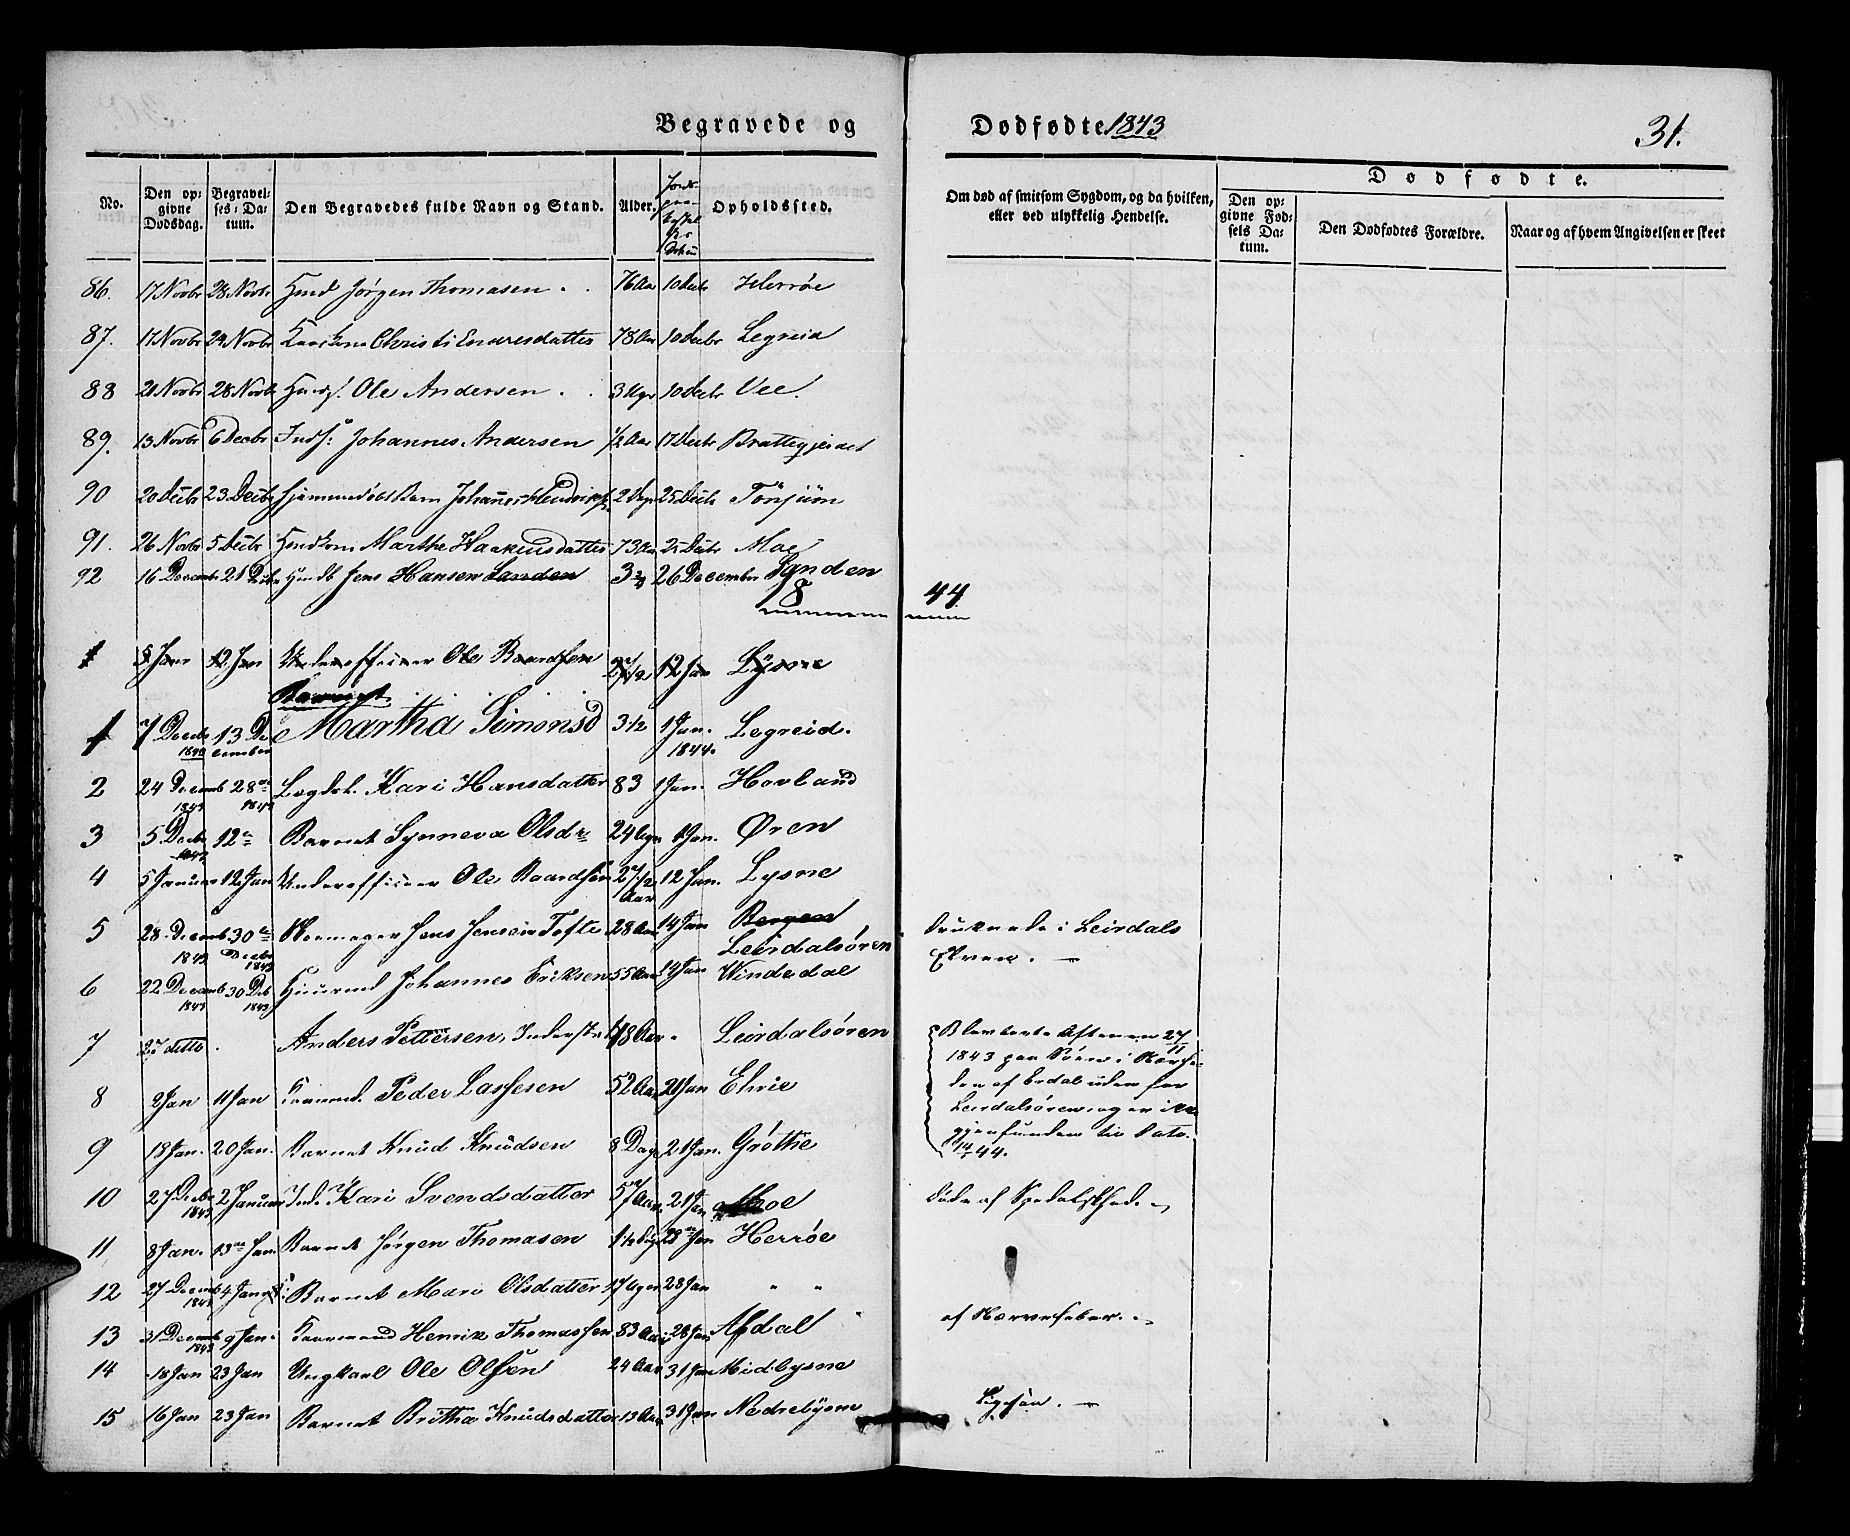 Begravede og Dødfødte 1843 31.
No. Den opgivne Dødsdag. Begravelses-Datum. Den Begravedes fulde Navn og Stand. Alder. Opholdssted. Om død af smitsom Sygdom, og da hvilken, eller ved ulykkelig Hendelse. Dødfødte.
Den opgivne Fødsels Datum. Den Dødfødtes Forældre. Naar og af hvem Angivelsen er skeet
86. 17 Novbr 28 Novbr Huusd Jørgen Thomasen 76 Aar 10 Decbr Herrøe
87. 17 Novbr 24 Novbr Christi Endresdatter 78 Aar 10 Decbr Legreid
88 20 Novbr 28 Novbr Ole Andersen 3 Uger 10 Decbr Vee.
89. 13 Novbr 6 Decbr Inds: Johannes Andersen ½ Aar 17 Decbr Brattegjerdet
90 20 Decbr 23 Decbr Hjemmedøbt Barn Johannes 2 Dage 25 Decbr Tönjum
91. 26 Novbr 5 Decbr Marthe Haakensdatter 73 Aar 25 Decbr Moe
92 16 December 21 Decbr Jens Hansen Sanden 3 26 December Sanden
8 44
1 5 Jan 12 Jan Underofficeer Ole Baardsen 12 Jan Lysne
Barnet
1 7 Decbr 1843 13 December Martha Simonsd 3½ 1 Jan. 1844. Legreid.
2 24 Decemb 1843 28 1843 Legdsl. Kari Hansdatter 83 1 Jan. Hovland
3 5 Decbr 1843 12 Barnet Synneva Olsdr 24 Uger 1 Jan. Øren
4 5 Januar 12 Jan Underofficeer Ole Baardsøn 27½ Aar 12 Jan. Lysne
5 28 Decemb 1843 30 Decbr 1843 Jens Jensen Tofte 28 Aar 14 Jan Bergen
Leirdalsøren druknede i Leirdals
Elven. —
6 22 Decemb 1843 30 Dcb 1843 Huusmd Johannes Eriksen 55 Aar 14 Jan Windedal
7 25 ditto Anders Pettersen, Inderst 48 Aar Leirdalsøren Blev borte Aftenen 27/11
1843 paa Søen i Nærhe-
den af Erdal uden for
Leirdalsøren og er ikke
gjenfunden til Dato.
14/1 44.
8 2 Jan 11 Jan Peder Lassesen 52 Aar 21 Jan Ehrie
9 18 Jan. 20 Jan. Barnet Knud Knudsen 8 Dage 21 Jan. Grøthe
10 27 Decbr 1843 2 Januar Ind. Kari Svendsdatter 57 Aar 21 Jan Moe døde af Spedalskhed.
11 8 Jan. 13 Jan Barnet Jørgen Thomasen 28 Jan Herrøe
12 27 Decemb 1843 4 Jan Barnet Mari Olsdatter 17 Uger 28 Jan " "
13 31 Decemb 1843 9 Jan. Kaarmand Henrik Thomassen 83 Aar 28 Jan Afdal af Nervefeber.
14 18 Jan 23 Jan Ungkarl Ole Olsen 24 Aar 31 Jan Midlysne
15 16 Jan 23 Jan Barnet Britha Knudsdatter 13 Aar 31 Jan Nedrelysne Ligesaa. —